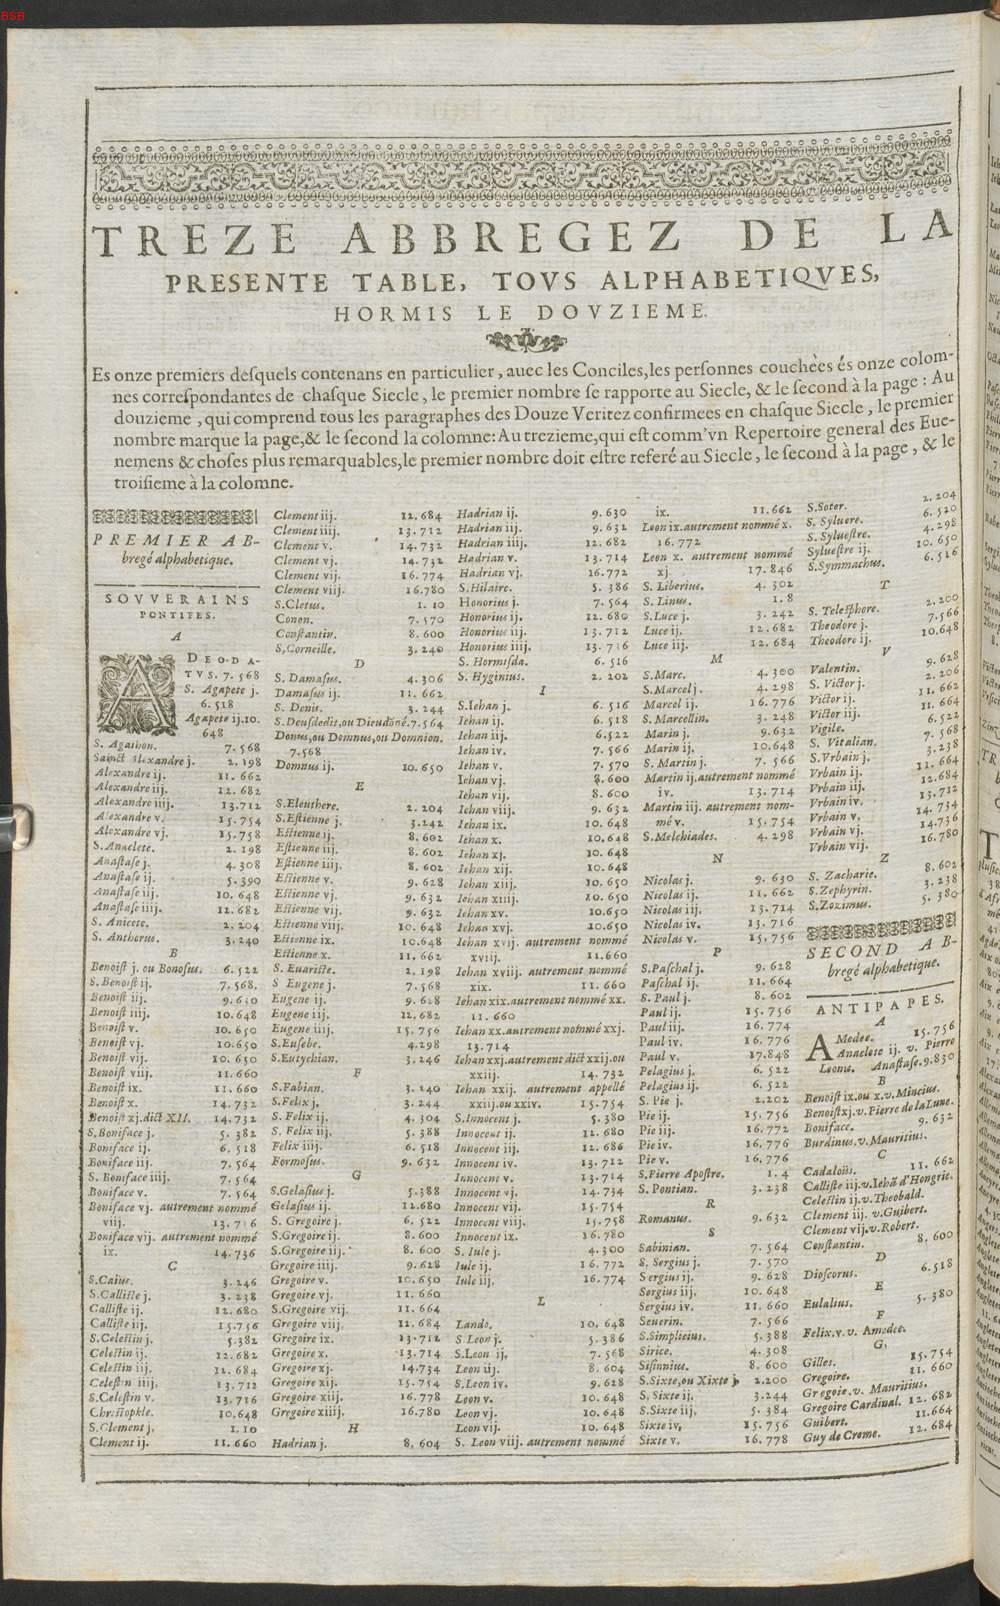 BSB
TREZE ABBREGEZ DE LA
PRESENTE TABLE, TOVS ALPHABETIQVES,
HORMIS LE DOVZIEME.
Es onze premiers desquels contenans en particulier, auec les Conciles, les personnes couchées és onze colom-
nes correspondantes de chasque Siecle, le premier nombre se rapporte au Siecle, & le second à la page: Au
douzieme, qui comprend tous les paragraphes des Douze Veritez confirmees en chasque Siecle, le premier
nombre marque la page, & le second la colomne: Au trezieme, qui est comm'vn Repertoire general des Eue-
nemens & choses plus remarquables, le premier nombre doit estre referé au Siecle, le second à la page, & le
troisieme à la colomne.
PREMIER AB-
bregé alphabetique.
SOVVERAINS
PONTIFES.
A
ADEODA-
TVS. 7. 568
S. Agapete j.
6. 518
Agapete ij. 10.
648
S. Agathon. 7. 568
Sainct Alexandre j. 2. 198
Alexandre ij. 11. 662
Alexandre iij. 12. 682
Alexandre iiij. 13. 712
Alexandre v. 15. 754
Alexandre vj. 15. 758
S. Anaclete. 2. 198
Anastase j. 4. 308
Anastase ij. 5. 390
Anastase iij. 10. 648
Anastase iiij. 12. 682
S. Anicete. 2. 204
S. Antherus. 3. 240
B
Benoist j. ou Bonosus. 6. 522
S. Benoist ij. 7. 568.
Benoist iij. 9. 630
Benoist iiij. 10. 648
Benoist v. 10. 650
Benoist vj. 10. 650
Benoist vij. 10. 650
Benoist viij. 11. 660
Benoist ix. 11. 660
Benoist x. 14. 732
Benoist xj. dict XII. 14. 732
S. Boniface j. 5. 382
Boniface ij. 6. 518
Boniface iij. 7. 564
S. Boniface iiij. 7. 564
Boniface v. 7. 564
Boniface vj. autrement nommé
viij. 13. 716
Boniface vij. autrement nommé
ix. 14. 736
C
S. Caius. 3. 246
S. Calliste j. 3. 238
Calliste ij. 12. 680
Calliste iij. 15. 756
S. Celestin j. 5. 382
Celestin ij. 12. 682
Celestin iij. 12. 684
Celestin iiij. 13. 712
S. Celestin v. 13. 716
Christople. 10. 648
S. Clement j. 1. 10
Clement ij. 11. 660
Clement iij. 12. 684
Clement iiij. 13. 712
Clement v. 14. 732
Clement vj. 14. 732
Clement vij. 16. 774
Clement viij. 16. 780
S. Cletus. 1. 10
Conon. 7. 570
Constantin. 8. 600
S. Corneille. 3. 240
D
S. Damasus. 4. 306
Damasus ij. 11. 662
S. Denis. 3. 244
S. Deusdedit, ou Dieudoné. 7. 564
Donus, ou Domnus, ou Domnion.
7. 568
Domnus ij. 10. 650
E
S. Eleuthere. 2. 204
S. Estienne j. 3. 242
Estienne ij. 8. 602
Estienne iij. 8. 602
Estienne iiij. 8. 602
Estienne v. 9. 628
Estienne vj. 9. 632
Estienne vij. 9. 632
Estienne viij. 10. 648
Estienne ix. 10. 648
Estienne x. 11. 662
S. Euariste. 2. 198
S. Eugene j. 7. 568
Eugene ij. 9. 628
Eugene iij. 12. 682
Eugene iiij. 15. 756
S. Eusebe. 4. 298
S. Eutychian. 3. 246
F
S. Fabian. 3. 240
S. Felix j. 3. 244
S. Felix ij. 4. 304
S. Felix iij. 5. 388
Felix iiij. 6. 518
Formosus. 9. 632
G
S. Gelasius j. 5. 388
Gelasius ij. 12. 680
S. Gregoire j. 6. 522
S. Gregoire ij. 8. 600
S. Gregoire iij. 8. 600
Gregoire iiij. 9. 628
Gregoire v. 10. 650
Gregoire vj. 11. 660
S. Gregoire vij. 11. 664
Gregoire viij. 12. 684
Gregoire ix. 13. 712
Gregoire x. 13. 714
Gregoire xj. 14. 734
Gregoire xij. 15. 754
Gregoire xiij. 16. 778
Gregoire xiiij. 16. 780
H
Hadrian j. 8. 604
Hadrian ij. 9. 630
Hadrian iij. 9. 632
Hadrian iiij. 12. 682
Hadrian v. 13. 714
Hadrian vj. 16. 772
S. Hilaire. 5. 386
Honorius j. 7. 564
Honorius ij. 12. 680
Honorius iij. 13. 712
Honorius iiij. 13. 716
S. Hormisda. 6. 516
S. Hyginius. 2. 202
I
S. Iehan j. 6. 516
Iehan ij. 6. 518
Iehan iij. 6. 522
Iehan iv. 7. 566
Iehan v. 7. 570
Iehan vj. 8. 600
Iehan vij. 8. 600
Iehan viij. 9. 632
Iehan ix. 10. 648
Iehan x. 10. 648
Iehan xj. 10. 648
Iehan xij. 10. 648
Iehan xiij. 10. 650
Iehan xiiij. 10. 650
Iehan xv. 10. 650
Iehan xvj. 10. 650
Iehan xvij autrement nommé
xviij. 11. 660
Iehan xviij. autrement nommé
xix. 11. 660
Iehan xix. autrement nommé xx.
11. 660
Iehan xx. autrement nommé xxj.
13. 714
Iehan xxj. autrement dict xxij. ou
xxiij. 14. 732
Iehan xxij. autrement appellé
xxiij. ou xxiv. 15. 754
S. Innocent j. 5. 380
Innocent ij. 12. 680
Innocent iij. 12. 686
Innocent iv. 13. 712
Innocent v. 13. 714
Innocent vj. 14. 734
Innocent vij. 15. 754
Innocent viij. 15. 758
Innocent ix. 16. 780
S. Iule j. 4. 300
Iule ij. 16. 772
Iule iij. 16. 774
L
Lando. 10. 648
S. Leon j. 5. 386
S. Leon ij. 7. 568
Leon iij. 8. 604
S. Leon iv. 9. 628
Leon v. 10. 648
Leon vj. 10. 648
Leon vij. 10. 648
S. Leon viij. autrement nommé
ix. 11. 662
Leon ix. autrement nommé x.
16. 772
Leon x. autrement nommé
xj. 17. 846
S. Liberius. 4. 302
S. Linus. 1. 8
S. Luce j. 3. 242
Luce ij. 12. 682
Luce iij. 12. 684
M
S. Marc. 4. 300
S. Marcel j. 4. 298
Marcel ij. 16. 776
S. Marcellin. 3. 248
Marin j. 9. 632
Marin ij. 10. 648
S. Martin j. 7. 566
Martin ij. autrement nommé
iv. 13. 714
Martin iij. autrement nom-
mé v. 15. 754
S. Melchiades. 4. 298
N
Nicolas j. 9. 630
Nicolas ij. 11. 662
Nicolas iij. 13. 714
Nicolas iv. 13. 716
Nicolas v. 15. 756
P
S. Paschal j. 9. 628
Paschal ij. 11. 664
S. Paul j. 8. 602
Paul ij. 15. 756
Paul iij. 16. 774
Paul iv. 16. 776
Paul v. 17. 848
Pelagius j. 6. 522
Pelagius ij. 6. 522
S. Pie j. 2. 202
Pie ij. 15. 756
Pie iij. 16. 772
Pie iv. 16. 776
Pie v. 16. 776
S. Pierre Apostre. 1. 4
S. Pontian. 3. 238
R
Romanus. 9. 632
S
Sabinian. 7. 564
S. Sergius j. 7. 570
Sergius ij. 9. 628
Sergius iij. 10. 648
Sergius iv. 11. 660
Seuerin. 7. 566
S. Simplicius. 5. 388
Sirice. 4. 308
Sisinnius. 8. 600
S. Sixte, ou Xixte j. 2. 200
S. Sixte ij. 3. 244
S. Sixte iij. 5. 384
Sixte iv. 15. 756
Sixte v. 16. 778
S. Soter. 2. 204
S. Syluere. 6. 520
S. Syluestre. 4. 298
Syluestre ij. 10. 650
S. Symmachus. 6. 516
T
S. Telesphore. 2. 200
Theodore j. 7. 566
Theodore ij. 10. 648
V
Valentin. 9. 628
S. Victor j. 2. 206
Victor ij. 11. 662
Victor iij. 11. 664
Vigile. 6. 522
S. Vitalian. 7. 568
S. Vrbain j. 3. 238
Vrbain ij. 11. 664
Vrbain iij. 12. 684
Vrbain iv. 13. 712
Vrbain v. 14. 734
Vrbain vj. 14. 736
Vrbain vij. 16. 780
Z
S. Zacharie. 8. 602
S. Zephyrin. 3. 238
S. Zozimus. 5. 380
SECOND AB-
bregé alphabetique.
ANTIPAPES.
A
Amedee. 15. 756
Anaclete ij. v. Pierre
Leonis. Anastase. 9. 830
B
Benoist ix. ou x. v. Mincius.
Benoist xj. v. Pierre de la Lune.
Boniface. 9. 632
Burdinus. v. Mauritius.
C
Cadaloüs. 11. 662
Calliste iij. v. Iehã d'Hongrie.
Celestin ij. v. Theobald.
Clement iij. v. Guibert.
Clement vij. v. Robert.
Constantin. 8. 600
D
Dioscorus. 6. 518
E
Eulalius. 5. 380
F
Felix. v. v. Amedee.
G
Gilles. 15. 754
Gregoire. 11. 660
Gregoie. v. Mauritius.
Gregoire Cardinal. 12. 682
Guibert. 11. 664
Guy de Creme. 12. 684